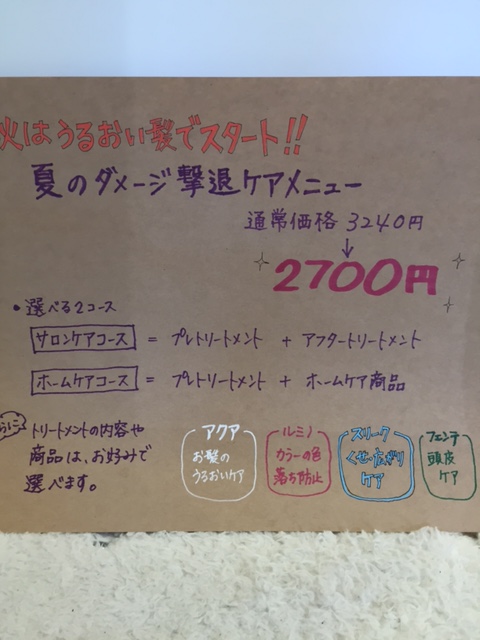 はうるおい髪でスタート!!
夏のダメージ撃退ケアメニュー
通常価格 3240円
↓
2700円
・選べる2コース
サロンケアコース = プレトリートメント + アフタートリートメント
ホームケアコース = プレトリートメント + ホームケア商品
さらに
トリートメントの内容や
商品は、お好みで
選べます。
アクア
お髪の
うるおいケア
ルミノ
カラーの色
落ち防止
スリーク
くせ・広がり
ケア
フェンテ
頭皮
ケア